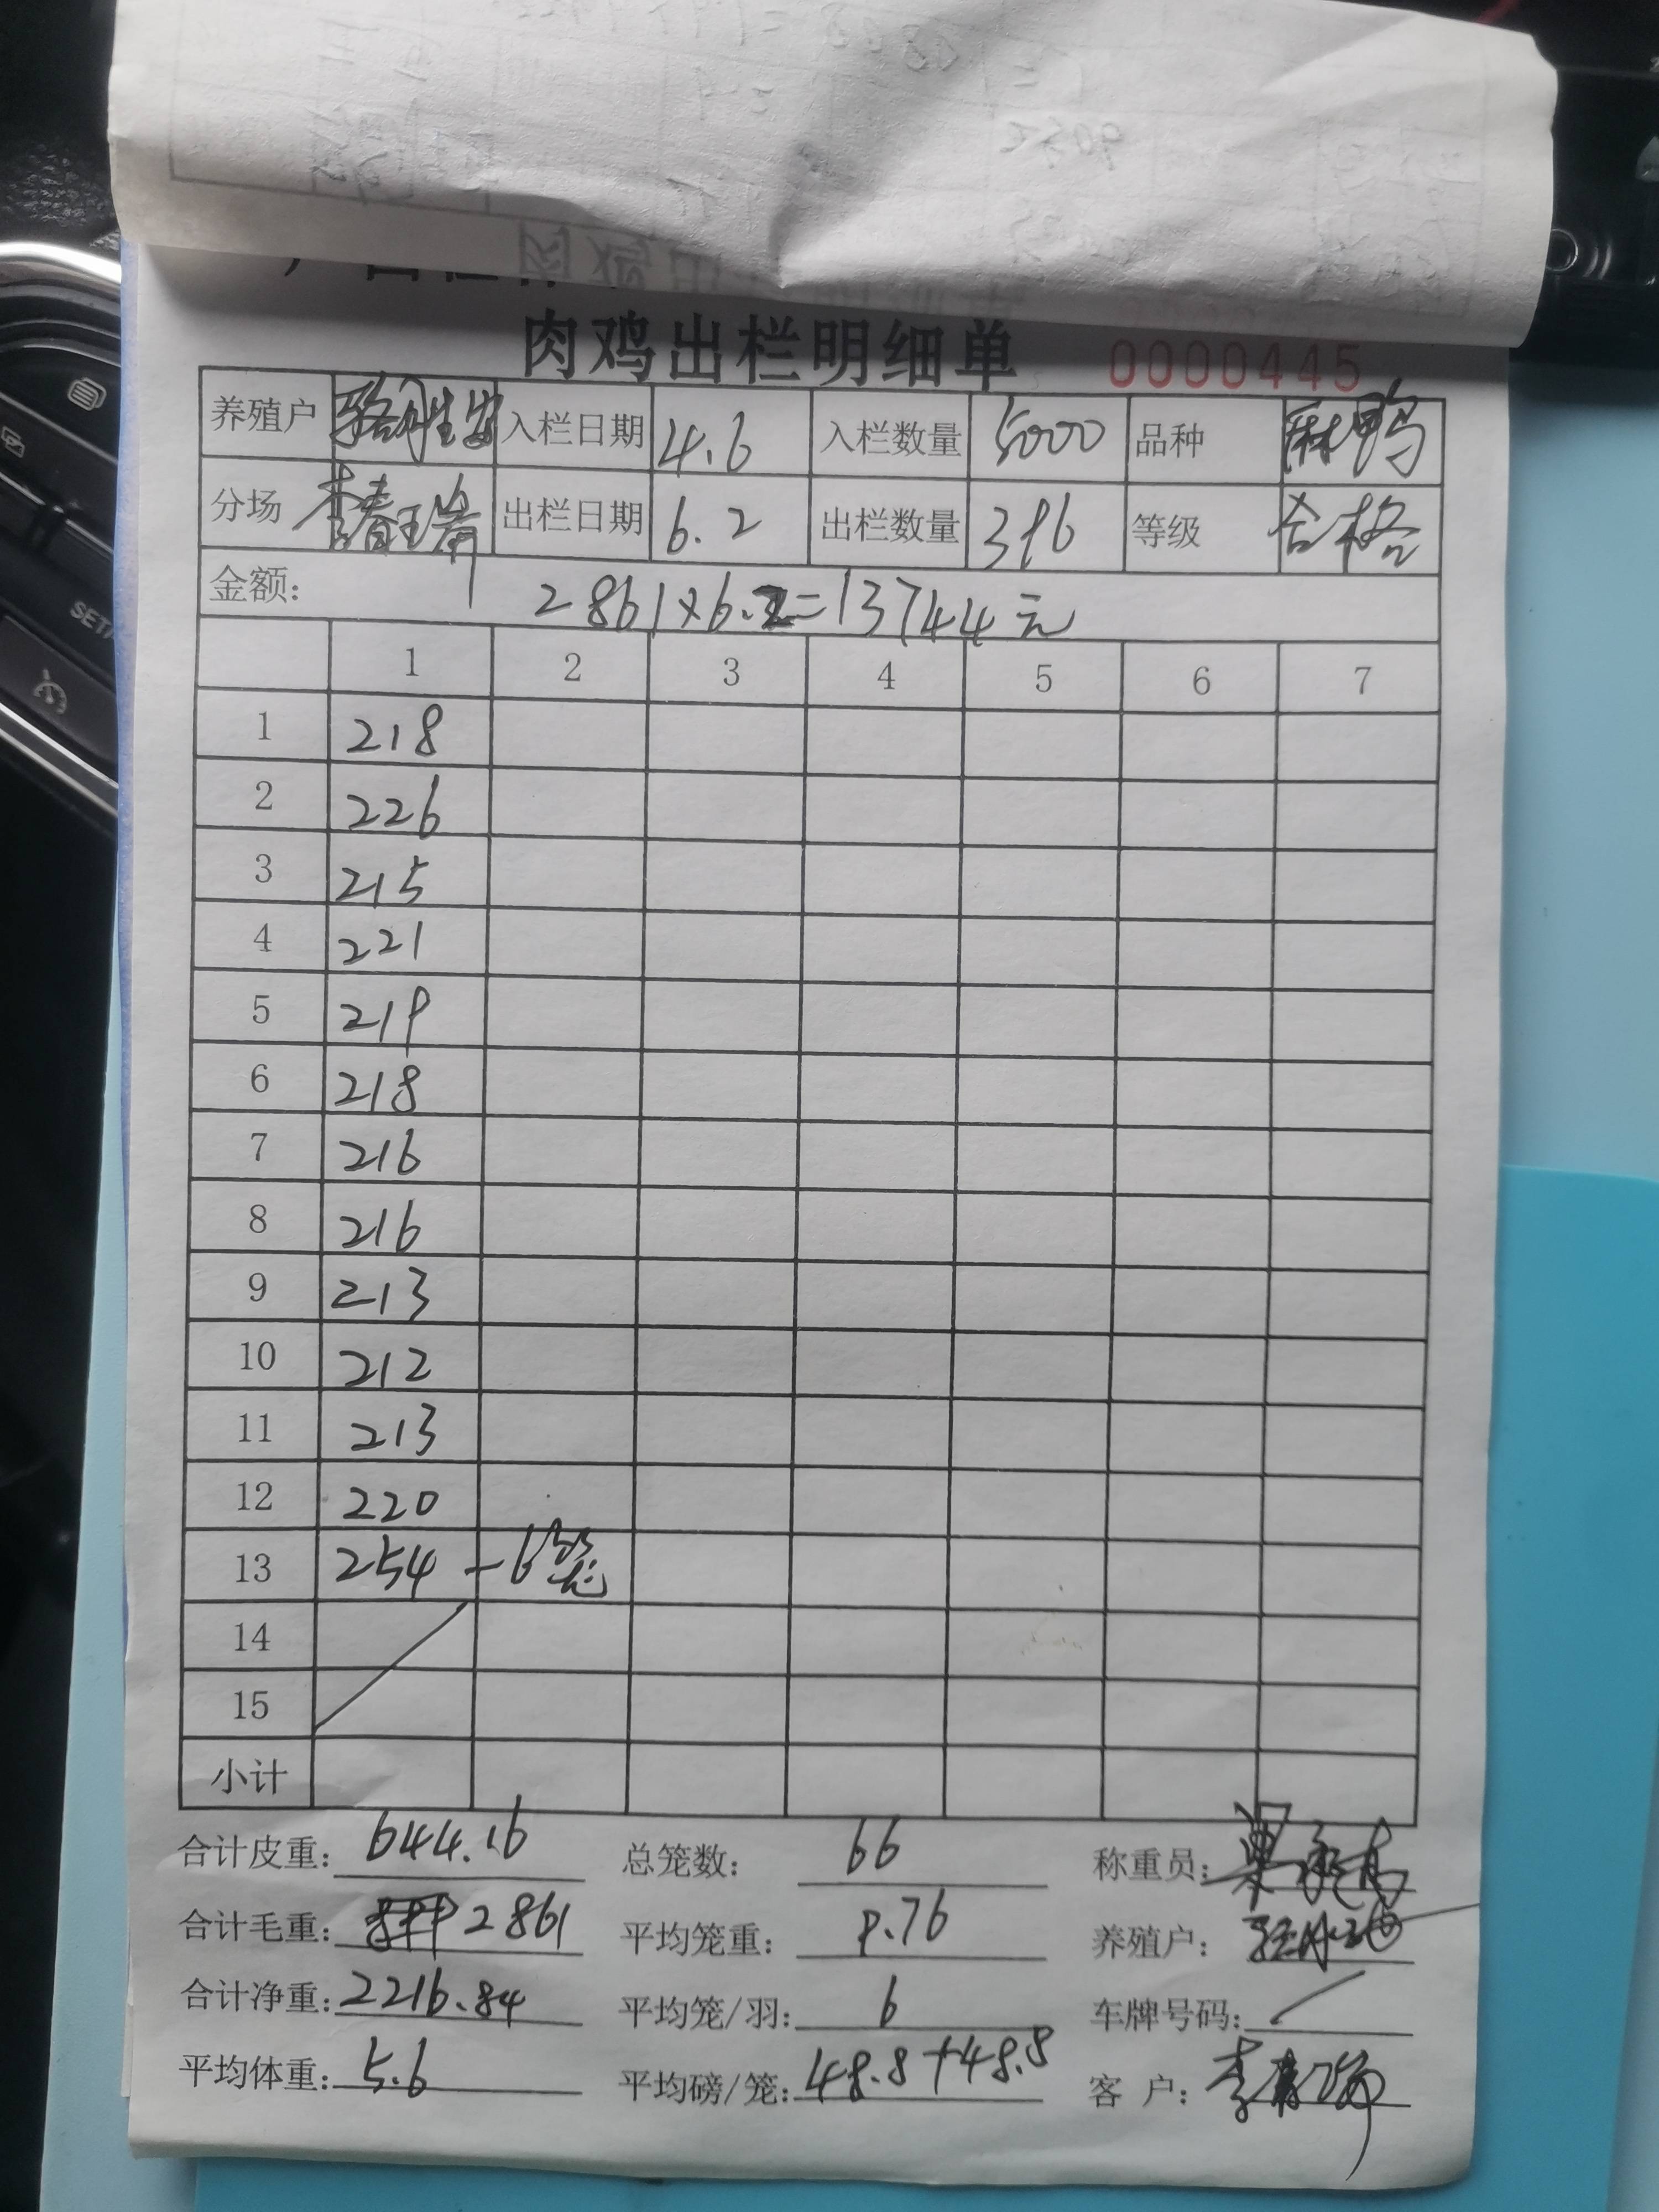 肉鸡出栏明细单 0000445
养殖户 骆胜安 入栏日期 4.6 入栏数量 5000 品种 麻鸭
分场 李春瑞 出栏日期 6.2 出栏数量 396 等级 合格
金额: 2861×6.2=13744元
1 2 3 4 5 6 7
1 218
2 226
3 215
4 221
5 219
6 218
7 216
8 216
9 213
10 212
11 213
12 220
13 254 -6笼
14
15
小计
合计皮重: 644.16 总笼数: 66 称重员:
合计毛重: 2861 平均笼重: 9.76 养殖户:
合计净重: 2216.84 平均笼/羽: 6 车牌号码: /
平均体重: 5.6 平均磅/笼: 48.8+48.8 客户: 李春瑞